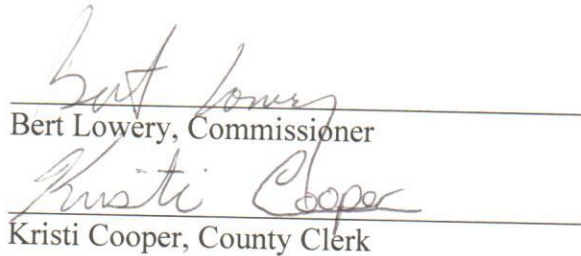 Bert Lowery
Bert Lowery, Commissioner
Kristi Cooper
Kristi Cooper, County Clerk